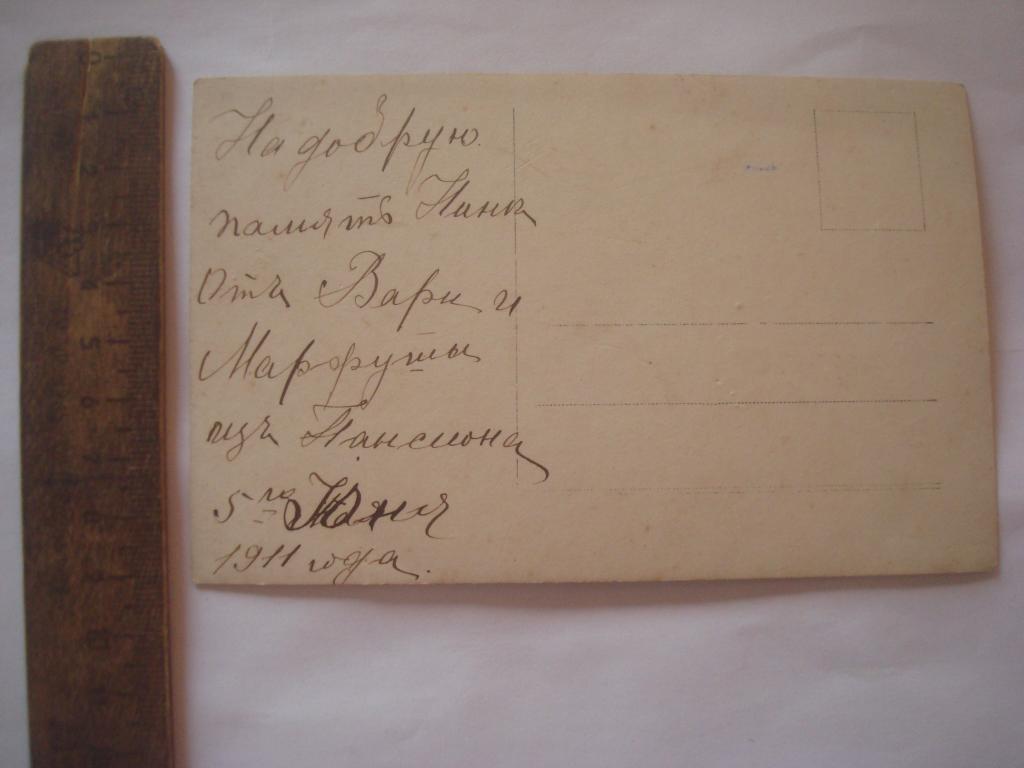 На добрую
память Нинѣ
Отъ Вари и
Марфуты
изъ Пансиона
5го Июня
1911 года.